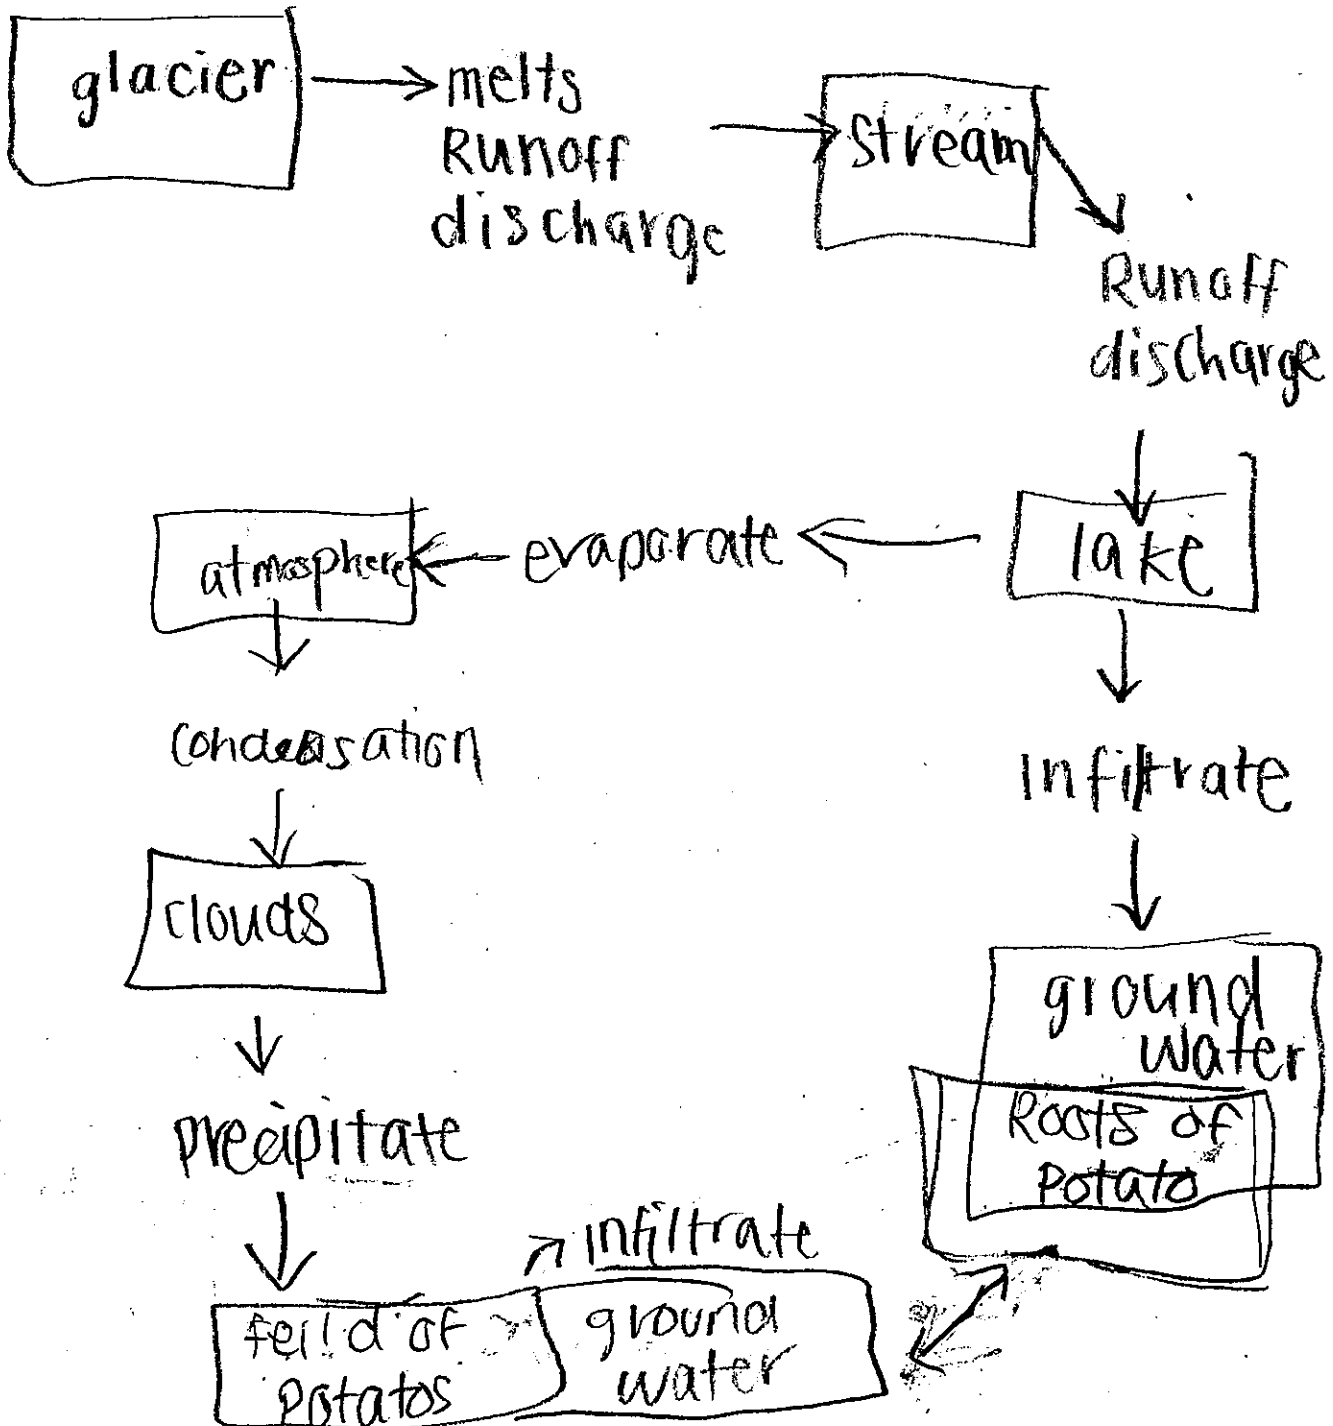 glacier
melts
Runoff
discharge
stream
Runoff
discharge
lake
evaporate
atmosphere
condensation
clouds
precipitate
feild of
potatos
infiltrate
ground
water
Infiltrate
ground
water
Roots of
potato